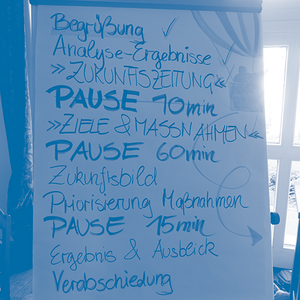 Begrüßung ✓
Analyse-Ergebnisse ✓
»ZUKUNFTSZEITUNG«
PAUSE 10min
»ZIELE & MASSNAHMEN«
PAUSE 60min
Zukunftsbild
Priorisierung Maßnahmen
PAUSE 15min
Ergebnis & Ausblick
Verabschiedung